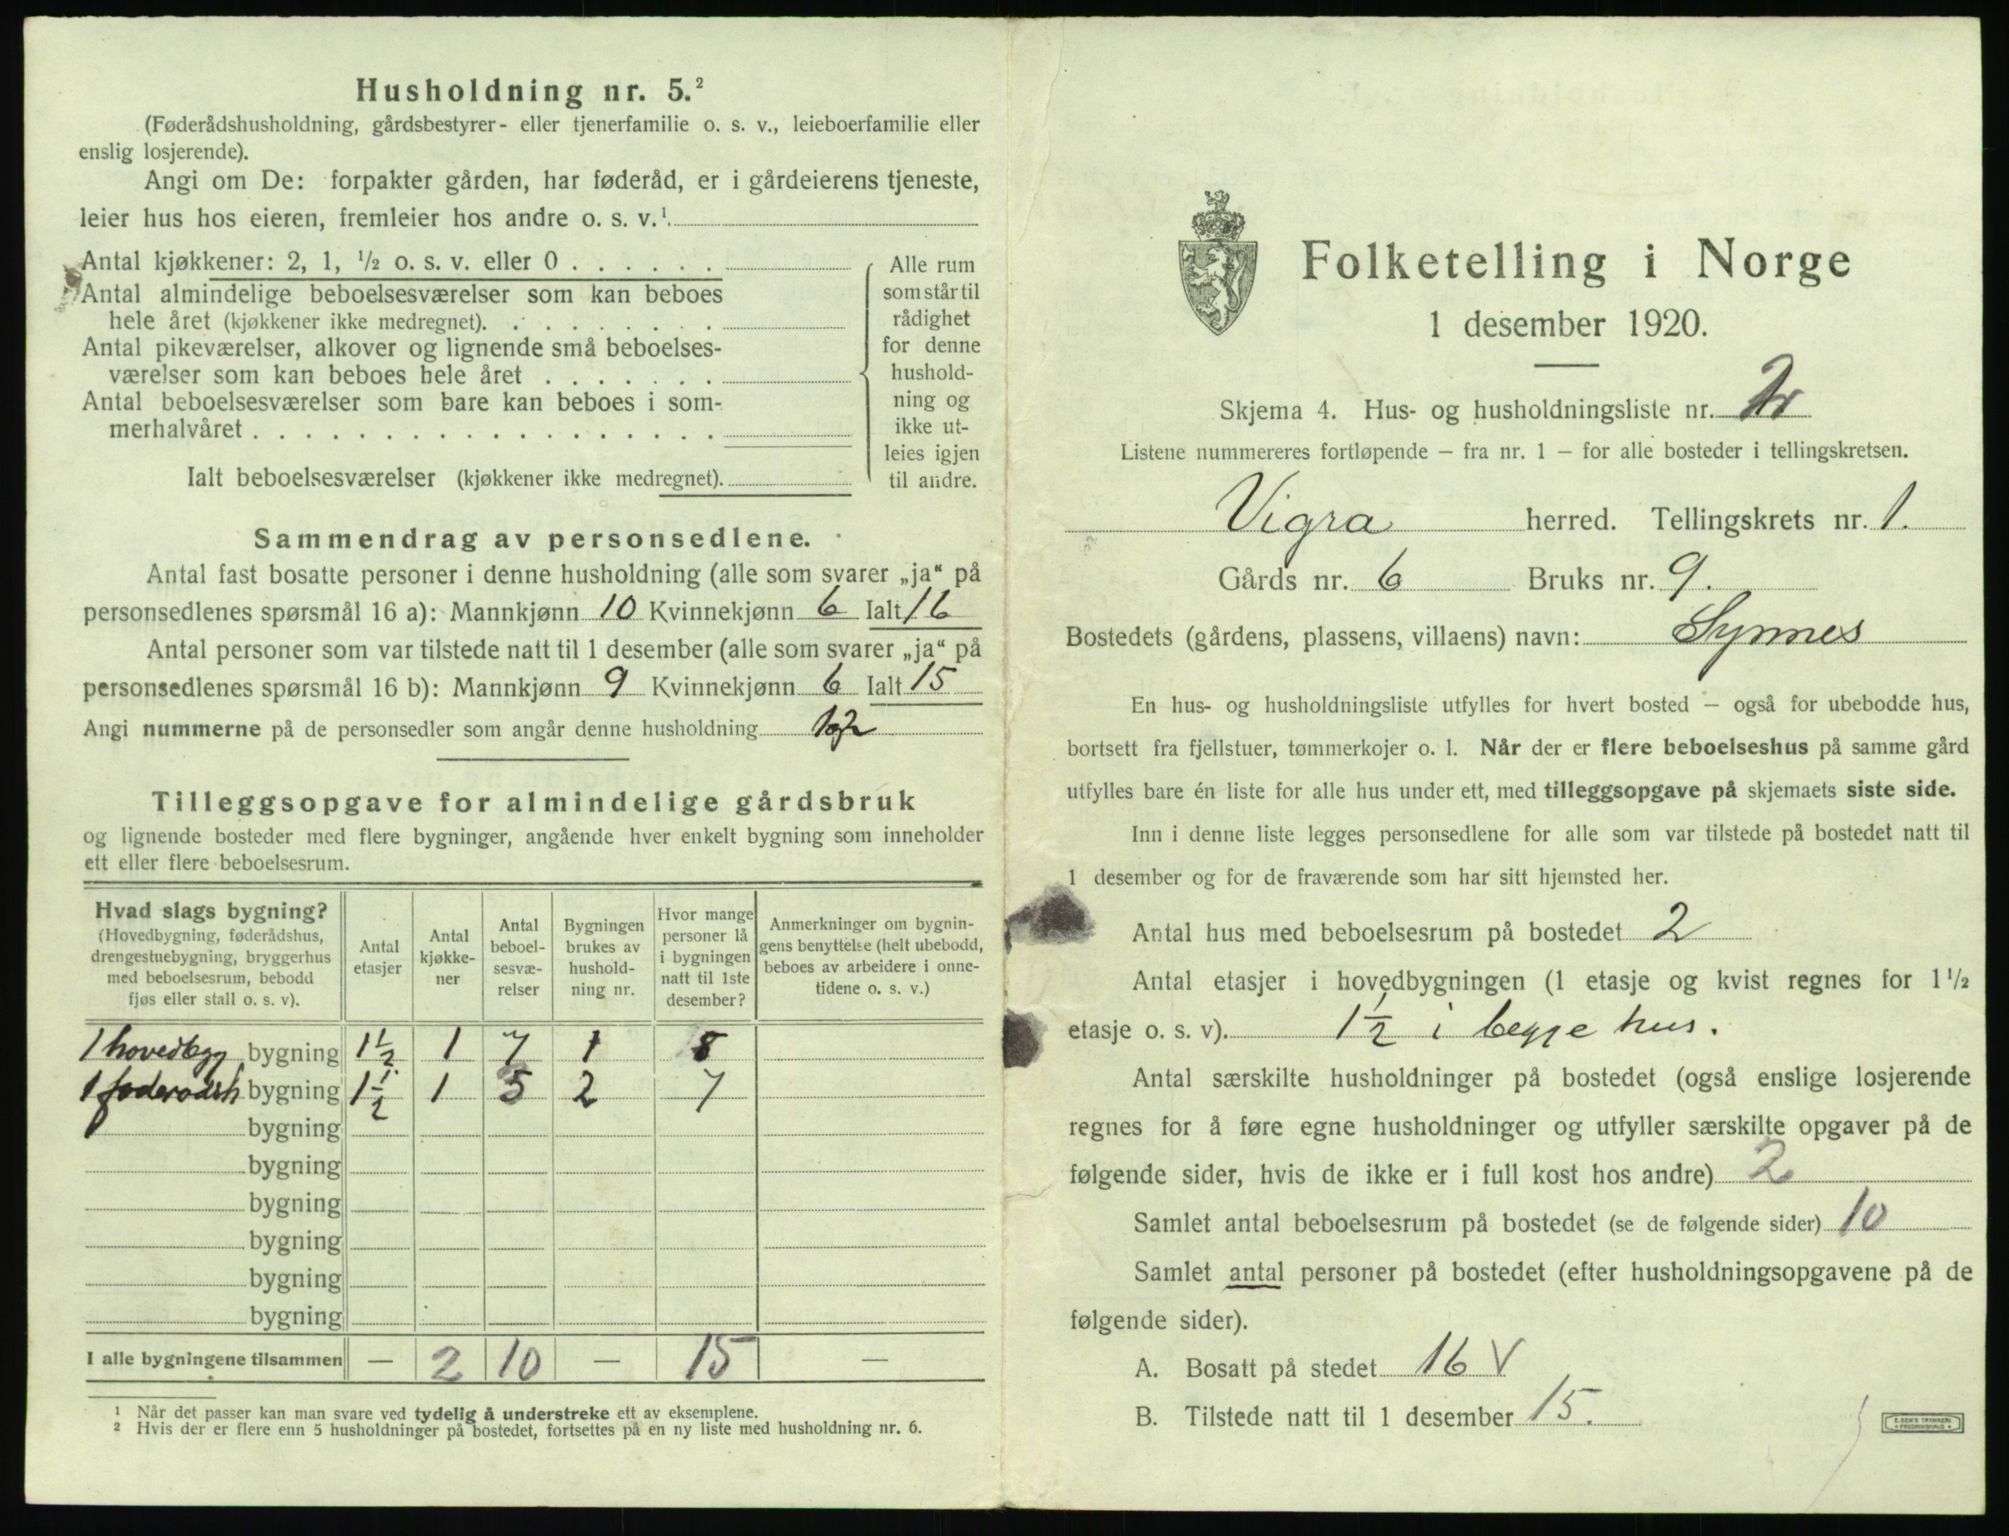 Husholdning nr. 5.²
(Føderådshusholdning, gårdsbestyrer- eller tjenerfamilie o. s. v., leieboerfamilie eller
enslig losjerende).
Angi om De: forpakter gården, har føderåd, er i gårdeierens tjeneste,
leier hus hos eieren, fremleier hos andre o. s. v.¹
Antal kjøkkener: 2, 1, ½ o. s. v. eller 0
Antal almindelige beboelsesværelser som kan beboes
hele året (kjøkkener ikke medregnet).
Antal pikeværelser, alkover og lignende små beboelses-
værelser som kan beboes hele året
Antal beboelsesværelser som bare kan beboes i som-
merhalvåret
Ialt beboelsesværelser (kjøkkener ikke medregnet).
Alle rum
som står til
rådighet
for denne
hushold-
ning og
ikke ut-
leies igjen
til andre.
Sammendrag av personsedlene.
Antal fast bosatte personer i denne husholdning (alle som svarer „ja“ på
personsedlenes spørsmål 16 a): Mannkjønn 10 Kvinnekjønn 6 Ialt 16
Antal personer som var tilstede natt til 1 desember (alle som svarer „ja“ på
personsedlenes spørsmål 16 b): Mannkjønn 9 Kvinnekjønn 6 Ialt 15
Angi nummerne på de personsedler som angår denne husholdning
Tilleggsopgave for almindelige gårdsbruk
og lignende bosteder med flere bygninger, angående hver enkelt bygning som inneholder
ett eller flere beboelsesrum.
Hvad slags bygning?
(Hovedbygning, føderådshus,
drengestuebygning, bryggerhus
med beboelsesrum, bebodd
fjøs eller stall o. s. v).
Antal
etasjer
Antal
kjøkke-
ner
Antal
beboel-
sesvæ-
relser
Bygningen
brukes av
hushold-
ning nr.
Hvor mange
personer lå
i bygningen
natt til 1ste
desember?
Anmerkninger om bygnin-
gens benyttelse (helt ubebodd,
beboes av arbeidere i onne-
tidene o. s. v.)
1 hovedbyg bygning 1½ 1 7 1 8
1 føderådsh bygning 1½ 1 5 2 7
bygning
bygning
bygning
bygning
bygning
bygning
I alle bygningene tilsammen — 2 10 — 15 —
¹ Når det passer kan man svare ved tydelig å understreke ett av eksemplene.
² Hvis der er flere enn 5 husholdninger på bostedet, fortsettes på en ny liste med husholdning nr. 6.
Folketelling i Norge
1 desember 1920.
Skjema 4. Hus- og husholdningsliste nr. 2
Listene nummereres fortløpende — fra nr. 1 — for alle bosteder i tellingskretsen.
Vigra herred. Tellingskrets nr. 1.
Gårds nr. 6 Bruks nr. 9.
Bostedets (gårdens, plassens, villaens) navn: Synnes
En hus- og husholdningsliste utfylles for hvert bosted — også for ubebodde hus,
bortsett fra fjellstuer, tømmerkojer o. l. Når der er flere beboelseshus på samme gård
utfylles bare én liste for alle hus under ett, med tilleggsopgave på skjemaets siste side.
Inn i denne liste legges personsedlene for alle som var tilstede på bostedet natt til
1 desember og for de fraværende som har sitt hjemsted her.
Antal hus med beboelsesrum på bostedet 2
Antal etasjer i hovedbygningen (1 etasje og kvist regnes for 1 ½
etasje o. s. v). 1½ i begge hus.
Antal særskilte husholdninger på bostedet (også enslige losjerende
regnes for å føre egne husholdninger og utfyller særskilte opgaver på de
følgende sider, hvis de ikke er i full kost hos andre) 2
Samlet antal beboelsesrum på bostedet (se de følgende sider) 10
Samlet antal personer på bostedet (efter husholdningsopgavene på de
følgende sider).
A. Bosatt på stedet 16 V
B. Tilstede natt til 1 desember 15.
E. SEM'S TRYKKERI
FREDRIKSHALD